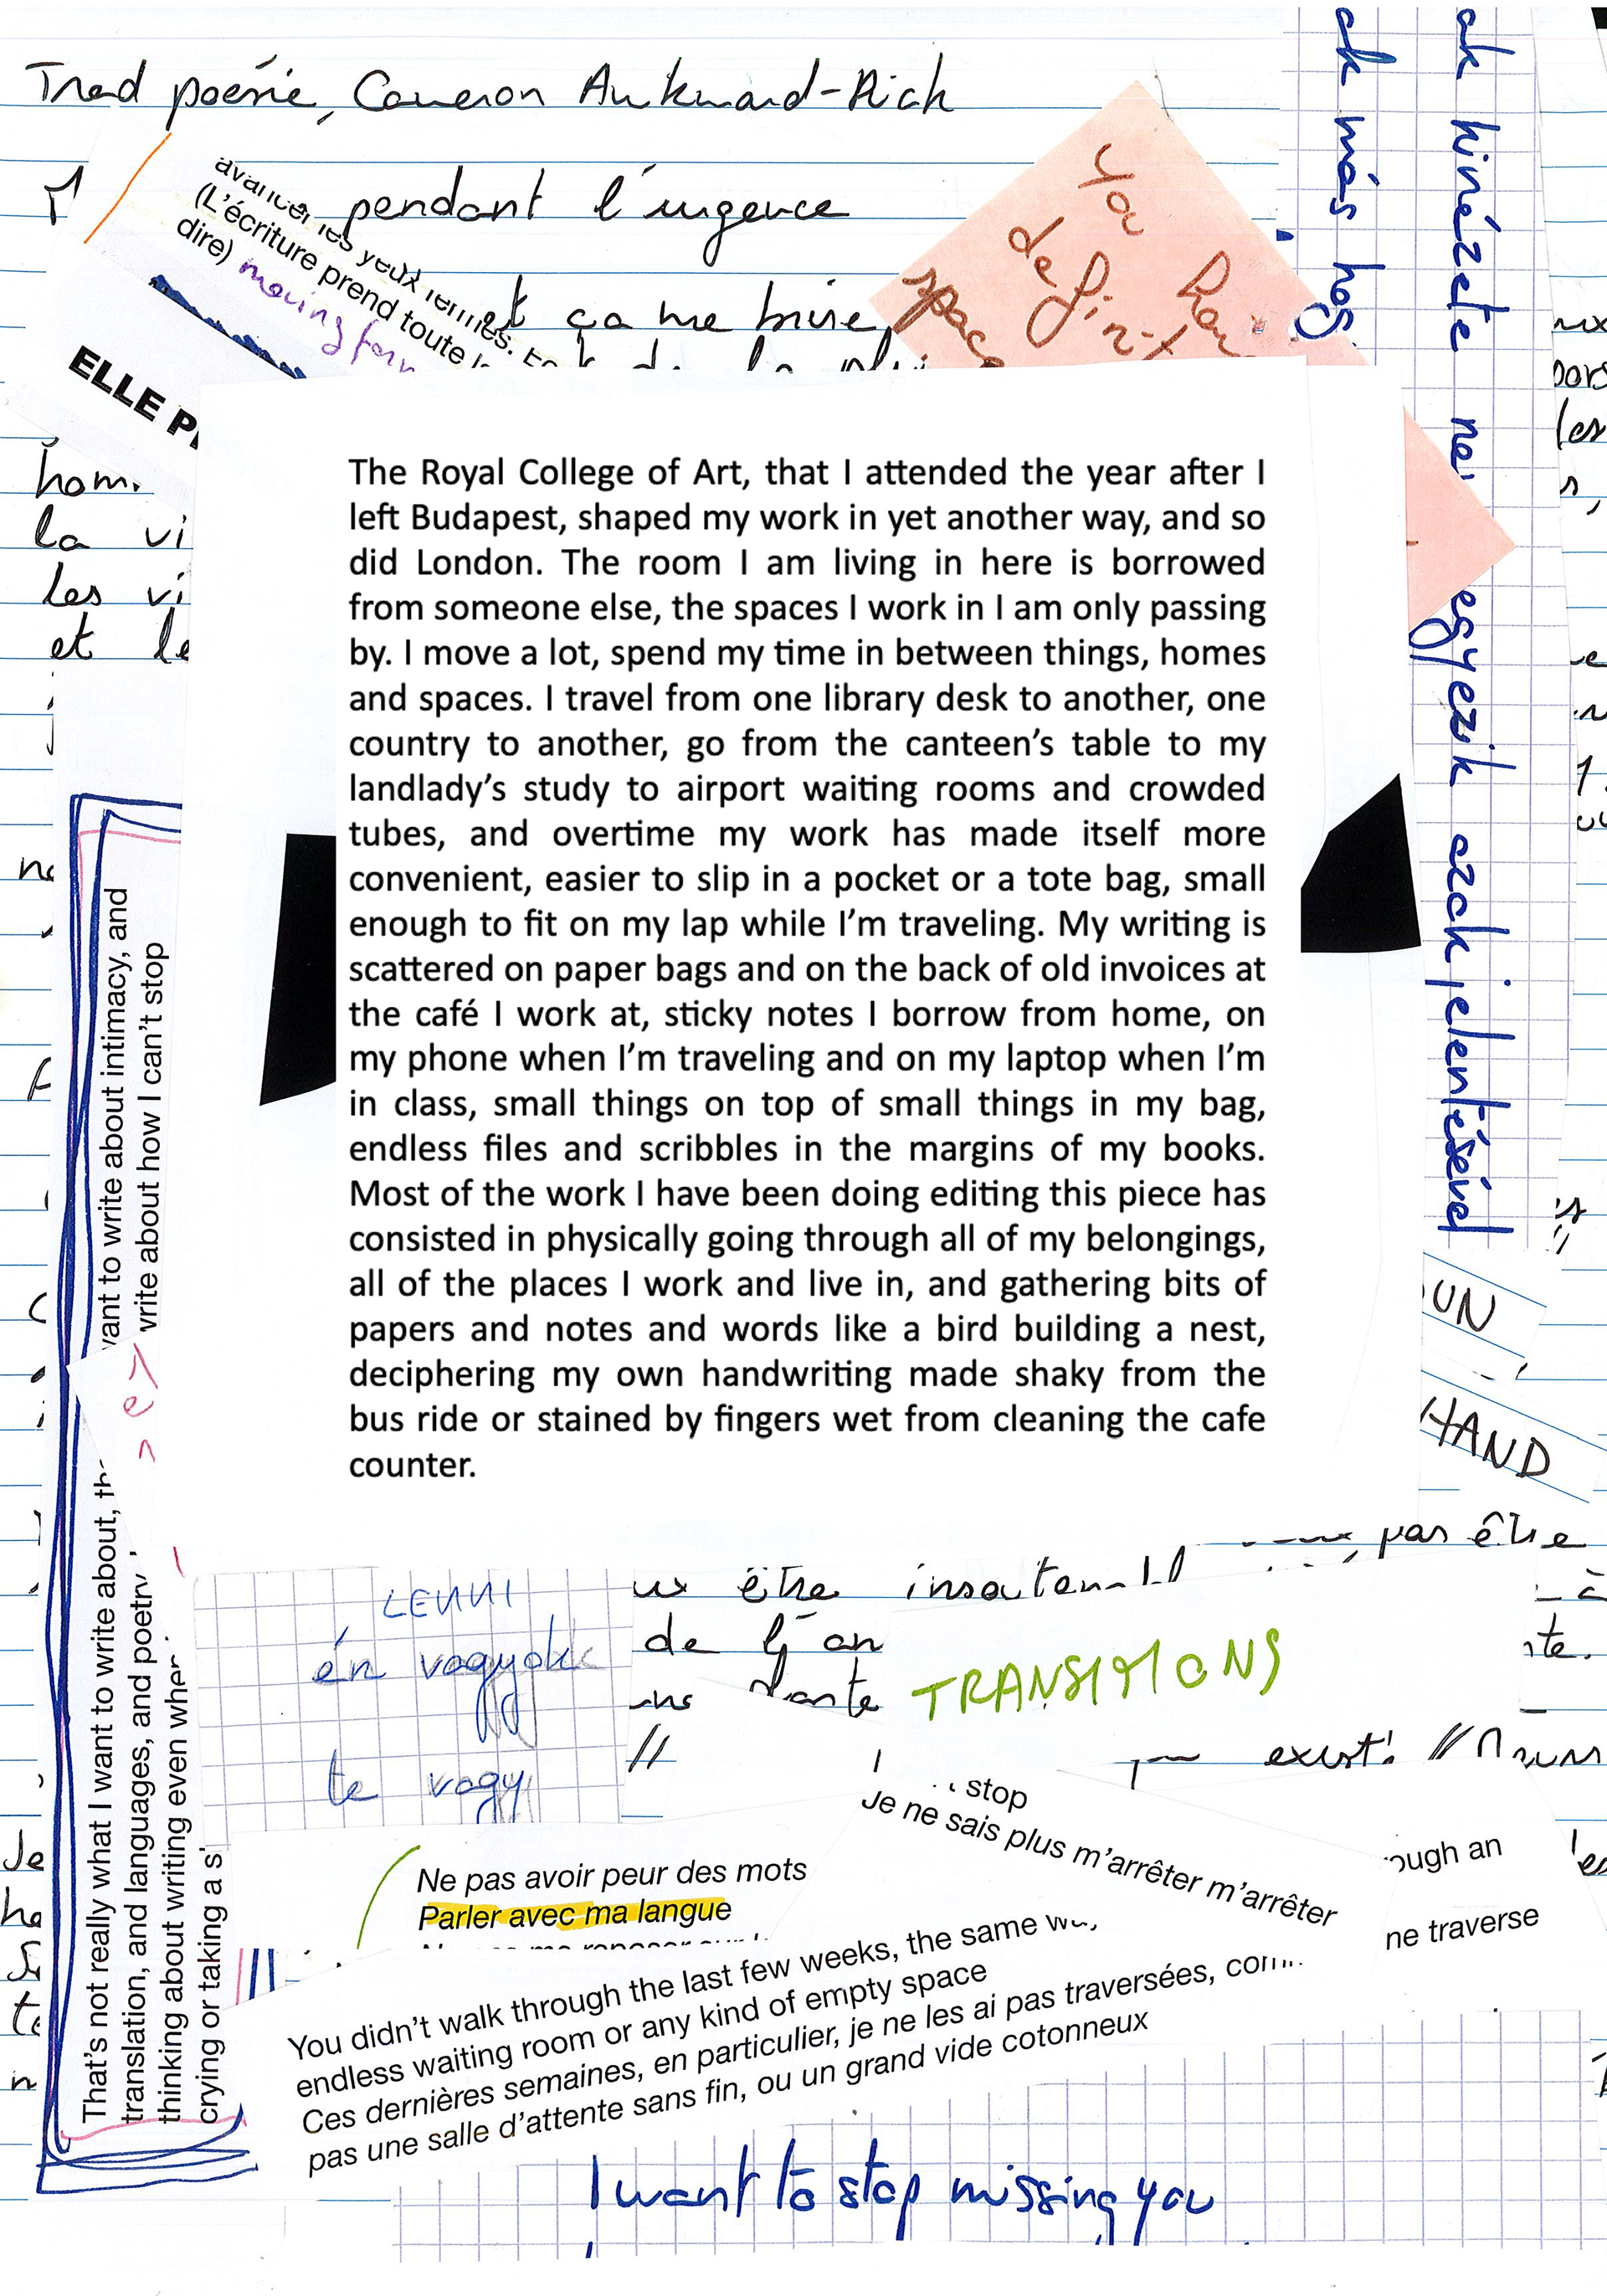 Trad poésie, Cameron Awkward-Rich
pendant l'urgence
avancer les yeux fermés.
(L'écriture prend toute
dire) moving
et ça me brise,
ELLE
you
define
space
ak más
ak kinézete
egyezik azok jelentésével
la vi
les vi
et le
The Royal College of Art, that I attended the year after I
left Budapest, shaped my work in yet another way, and so
did London. The room I am living in here is borrowed
from someone else, the spaces I work in I am only passing
by. I move a lot, spend my time in between things, homes
and spaces. I travel from one library desk to another, one
country to another, go from the canteen's table to my
landlady's study to airport waiting rooms and crowded
tubes, and overtime my work has made itself more
convenient, easier to slip in a pocket or a tote bag, small
enough to fit on my lap while I'm traveling. My writing is
scattered on paper bags and on the back of old invoices at
the café I work at, sticky notes I borrow from home, on
my phone when I'm traveling and on my laptop when I'm
in class, small things on top of small things in my bag,
endless files and scribbles in the margins of my books.
Most of the work I have been doing editing this piece has
consisted in physically going through all of my belongings,
all of the places I work and live in, and gathering bits of
papers and notes and words like a bird building a nest,
deciphering my own handwriting made shaky from the
bus ride or stained by fingers wet from cleaning the cafe
counter.
want to write about intimacy, and
write about how I can't stop
That's not really what I want to write about,
translation, and languages, and poetry
thinking about writing even when
crying or taking a s
UN
HAND
pas être
être
de
LENNI
én vagyok
te vagy
TRANSITIONS
stop
Je ne sais plus m'arrêter m'arrêter
Ne pas avoir peur des mots
Parler avec ma langue
ough an
ne traverse
You didn't walk through the last few weeks, the same
endless waiting room or any kind of empty space
Ces dernières semaines, en particulier, je ne les ai pas traversées,
pas une salle d'attente sans fin, ou un grand vide cotonneux
I want to stop missing you